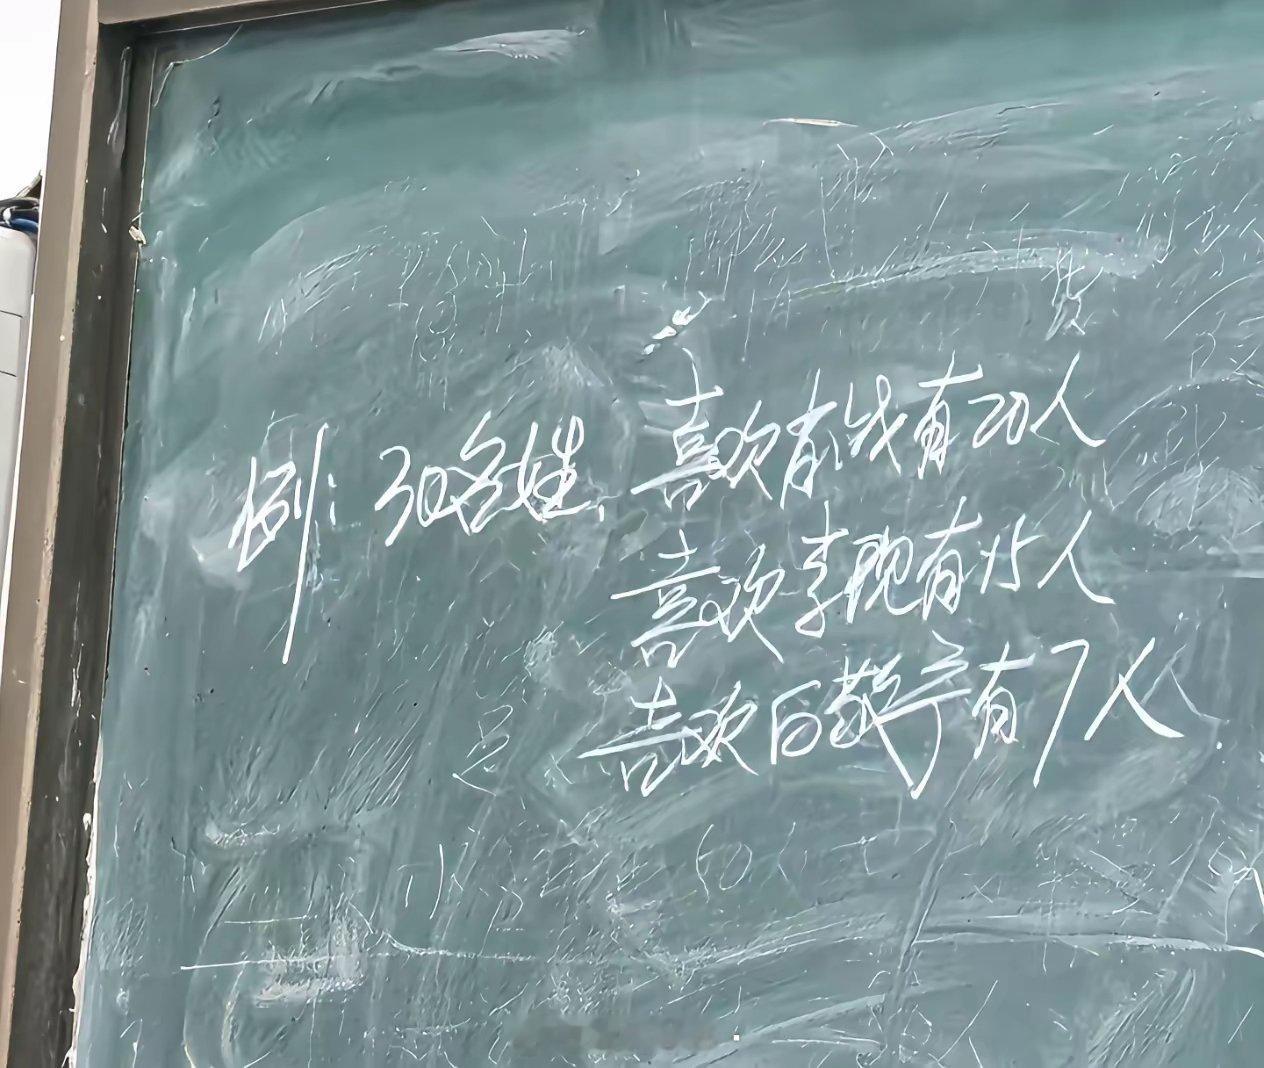 例：30名女生，喜欢肖战有20人
喜欢李现有15人
喜欢白敬亭有7人.